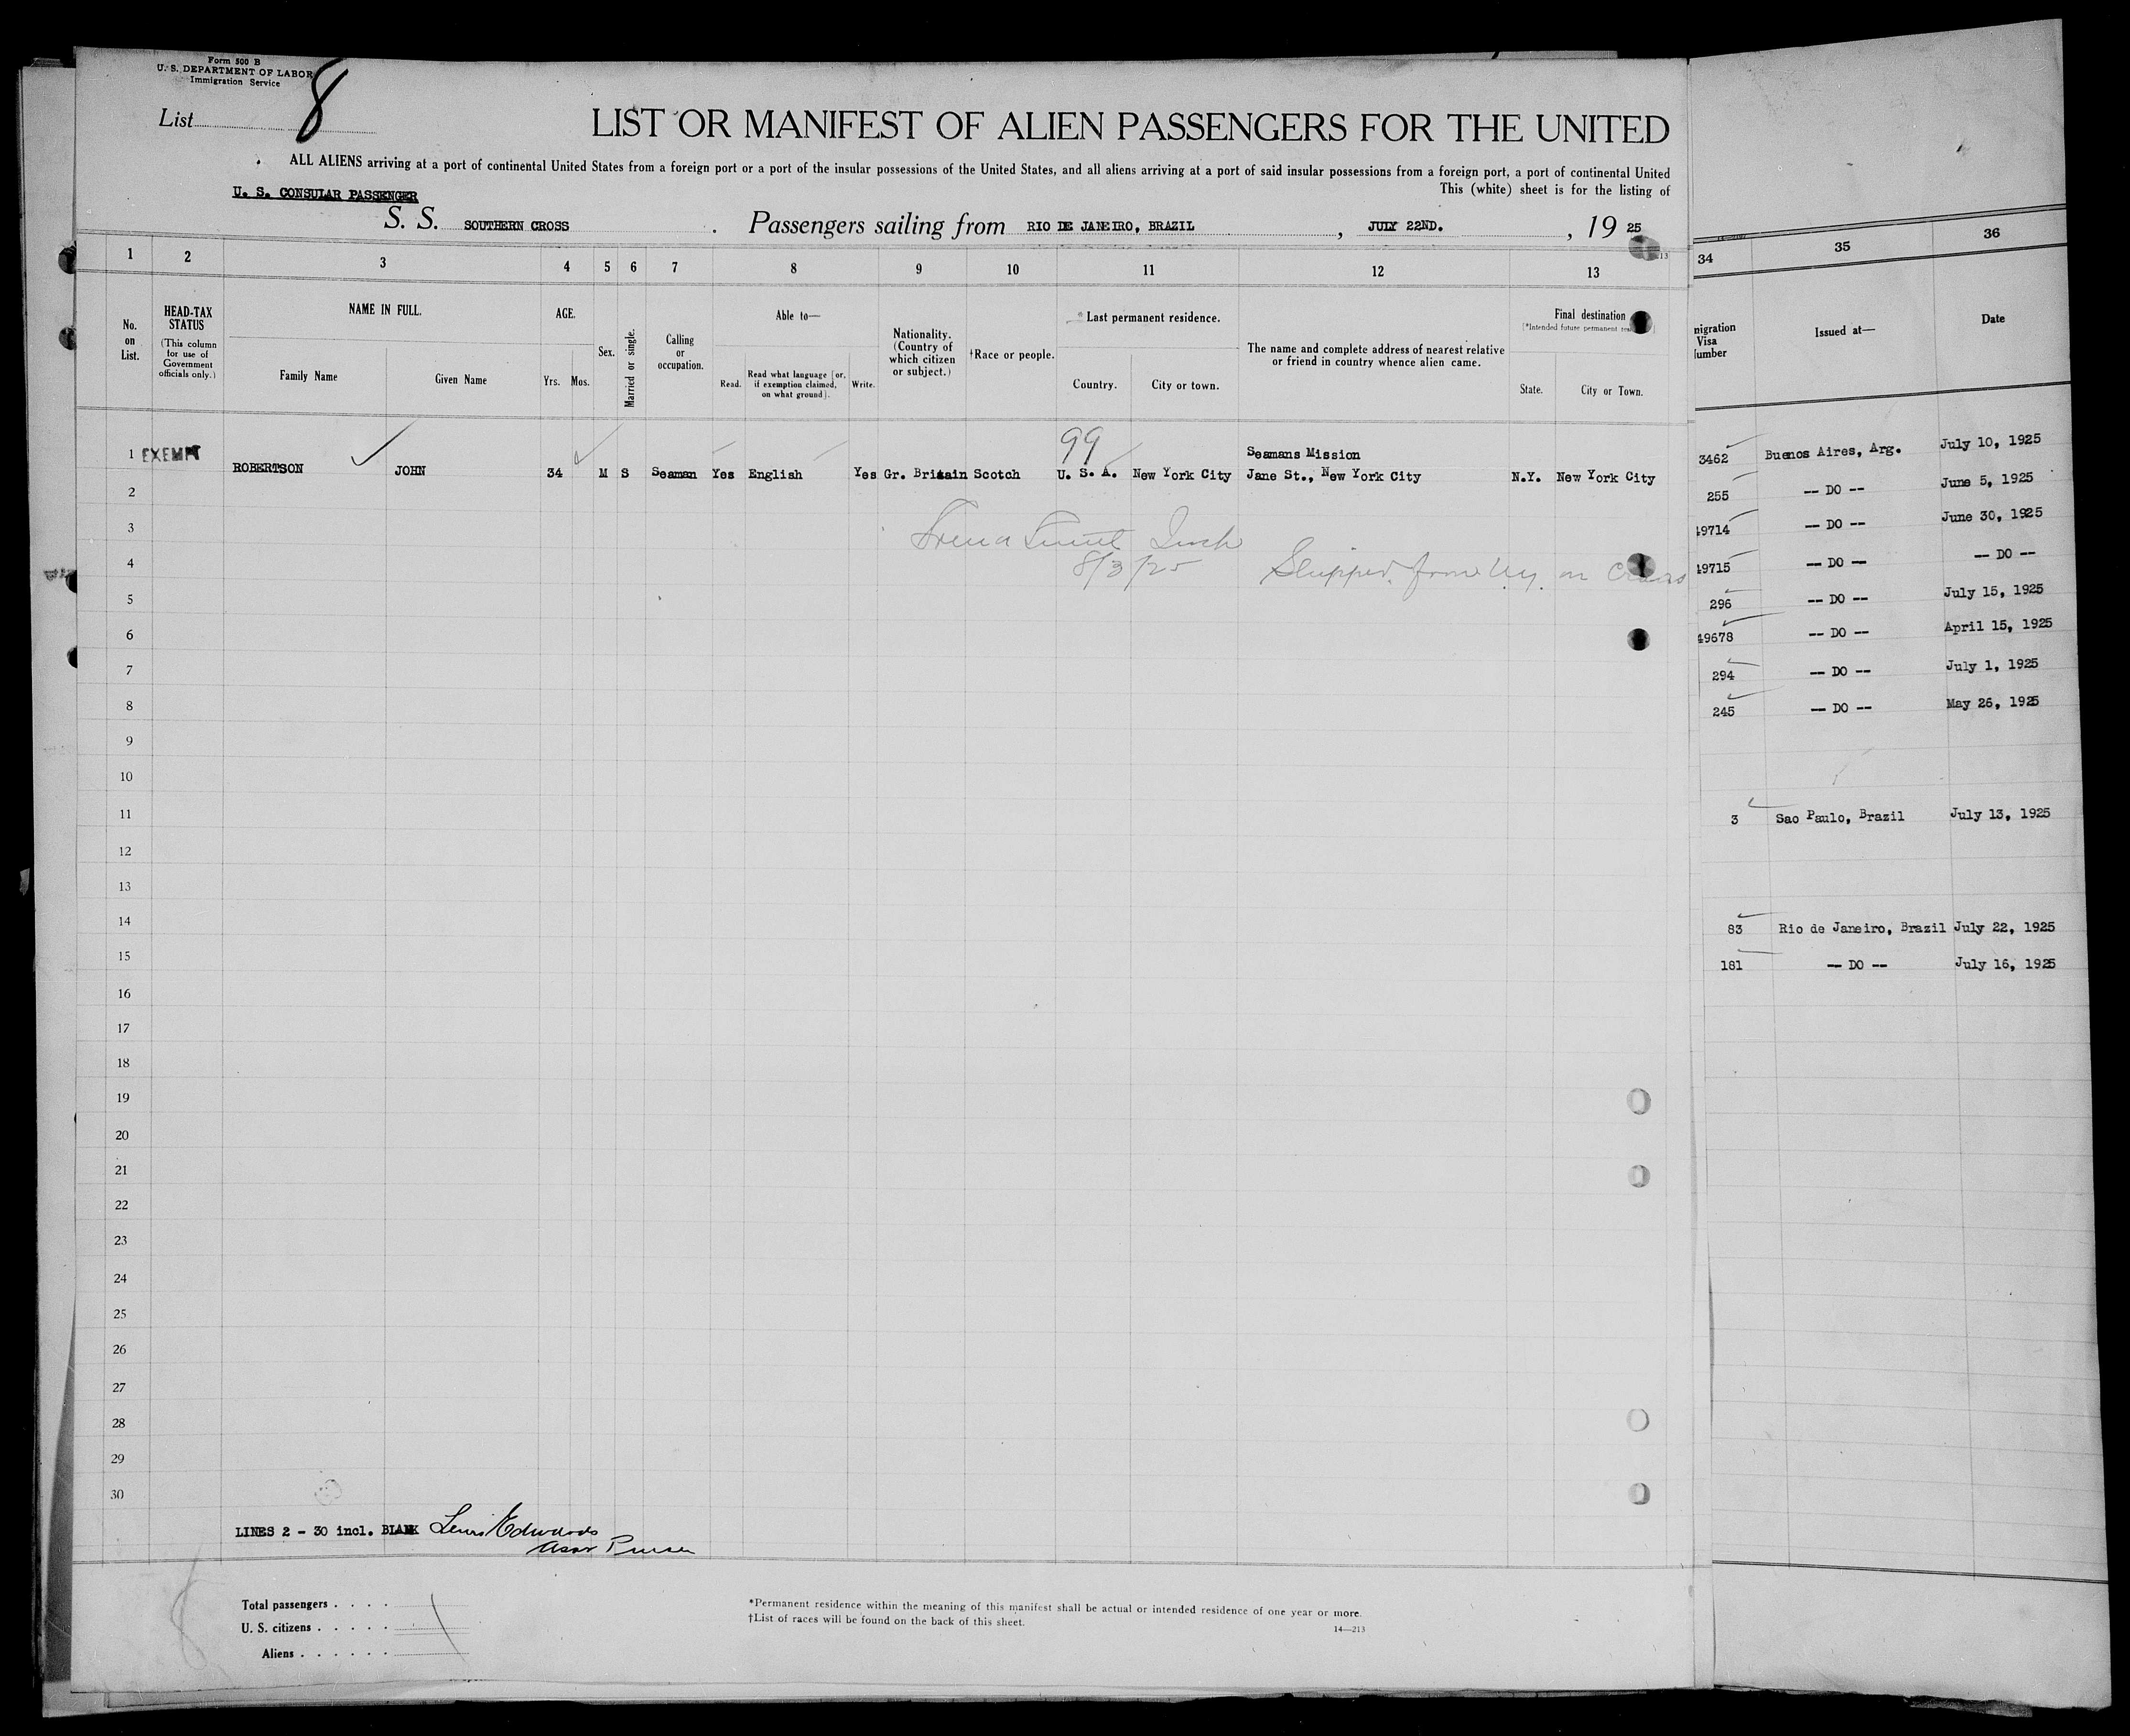 Form 500 B
U. S. DEPARTMENT OF LABOR
Immigration Service
List 8
LIST OR MANIFEST OF ALIEN PASSENGERS FOR THE UNITED
ALL ALIENS arriving at a port of continental United States from a foreign port or a port of the insular possessions of the United States, and all aliens arriving at a port of said insular possessions from a foreign port, a port of continental United
This (white) sheet is for the listing of
U. S. CONSULAR PASSENGER
S. S. SOUTHERN CROSS . Passengers sailing from RIO DE JANEIRO, BRAZIL , JULY 22ND. , 19 25
1 2 3 4 5 6 7 8 9 10 11 12 13
No. on List.
HEAD-TAX STATUS
(This column for use of Government officials only.)
NAME IN FULL.
Family Name Given Name
AGE.
Yrs. Mos.
Sex.
Married or single.
Calling or occupation.
Able to—
Read. Read what language [or, if exemption claimed, on what ground]. Write.
Nationality. (Country of which citizen or subject.)
†Race or people.
*Last permanent residence.
Country. City or town.
The name and complete address of nearest relative or friend in country whence alien came.
Final destination
State. City or Town.
99
1 EXEMPT ROBERTSON JOHN 34 M S Seaman Yes English Yes Gr. Britain Scotch U. S. A. New York City Seamans Mission Jane St., New York City N.Y. New York City
2
3
8/3/25
Shipped from N.Y. on
4
5
6
7
8
9
10
11
12
13
14
15
16
17
18
19
20
21
22
23
24
25
26
27
28
29
30
LINES 2 - 30 incl. BLANK Lewis Edwards
Asst Purser
Total passengers
U. S. citizens
Aliens
8
*Permanent residence within the meaning of this manifest shall be actual or intended residence of one year or more.
†List of races will be found on the back of this sheet.
14—213
34 35 36
migration Visa Number
Issued at—
Date
3462 Buenos Aires, Arg. July 10, 1925
255 -- DO -- June 5, 1925
49714 -- DO -- June 30, 1925
49715 -- DO -- -- DO --
296 -- DO -- July 15, 1925
49678 -- DO -- April 15, 1925
294 -- DO -- July 1, 1925
245 -- DO -- May 26, 1925
3 Sao Paulo, Brazil July 13, 1925
83 Rio de Janeiro, Brazil July 22, 1925
181 -- DO -- July 16, 1925